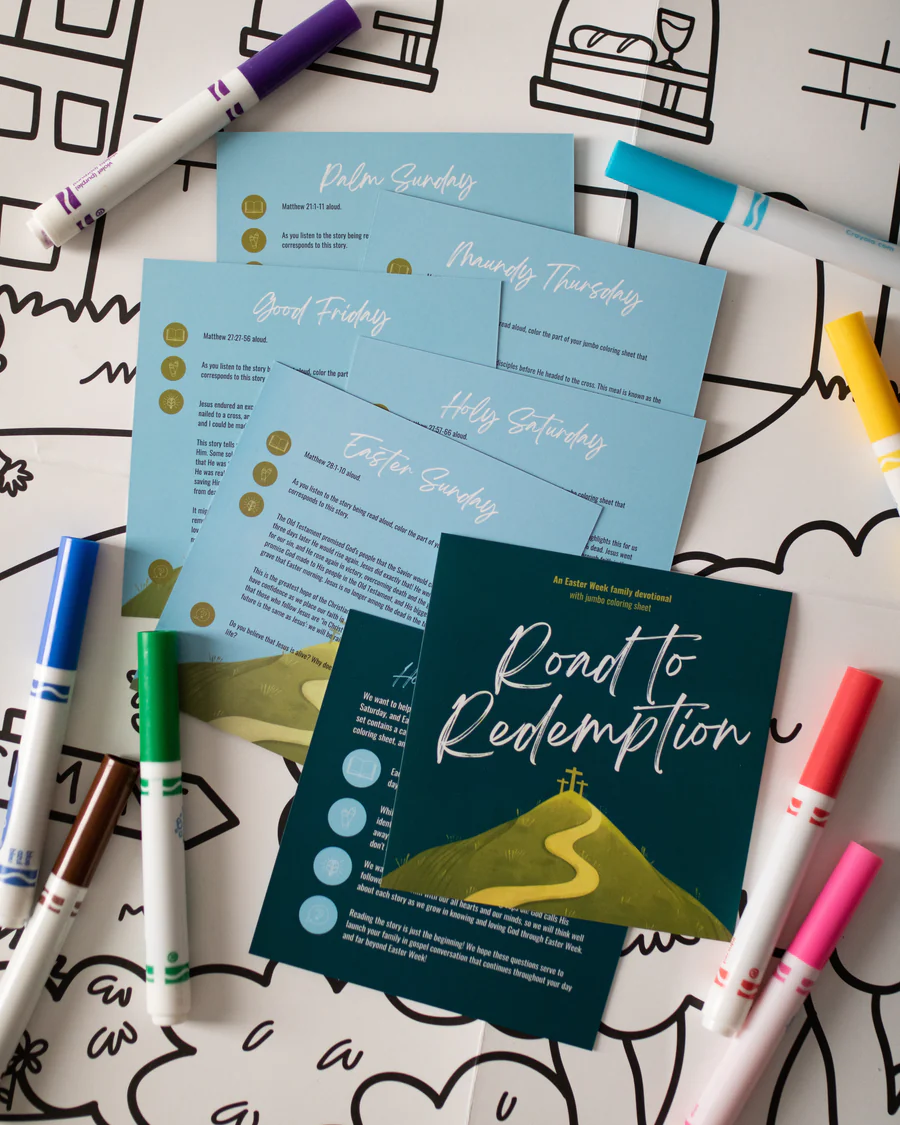 Palm Sunday
Matthew 21:1-11 aloud.
As you listen to the story being re
corresponds to this story.
Maundy Thursday
read aloud, color the part of your jumbo coloring sheet that
disciples before He headed to the cross. This meal is known as the
Good Friday
Matthew 27:27-56 aloud.
As you listen to the story b
aloud, color the part
corresponds to this story
Jesus endured an exc
nailed to a cross, an
and I could be mad
This story tells
Him. Some sol
that He was
He was real
saving Him
from dea
It mig
Holy Saturday
27:57-66 aloud.
coloring sheet that
highlights this for us
dead. Jesus went
Easter Sunday
Matthew 28:1-10 aloud.
As you listen to the story being read aloud, color the part of y
corresponds to this story.
The Old Testament promised God's people that the Savior would
three days later He would rise again. Jesus did exactly that! He
for our sin, and He rose again in victory, overcoming death and the
promise God made to His people in the Old Testament, and His bigge
grave that Easter morning. Jesus is no longer among the dead in the
This is the greatest hope of the Christian
have confidence as we place our faith in
that those who follow Jesus are "in Christ
future is the same as Jesus': we will be
Do you believe that Jesus is alive? Why don
life?
An Easter Week family devotional
with jumbo coloring sheet
Road to
Redemption
We want to help
Saturday, and Ea
set contains a ca
coloring sheet, an
Eac
day
Whi
iden
away
don't
We wa
follow
God calls His
with our all hearts and our minds, so we will think well
about each story as we grow in knowing and loving God through Easter Week.
Reading the story is just the beginning! We hope these questions serve to
launch your family in gospel conversation that continues throughout your day
and far beyond Easter Week!
Crayola.com